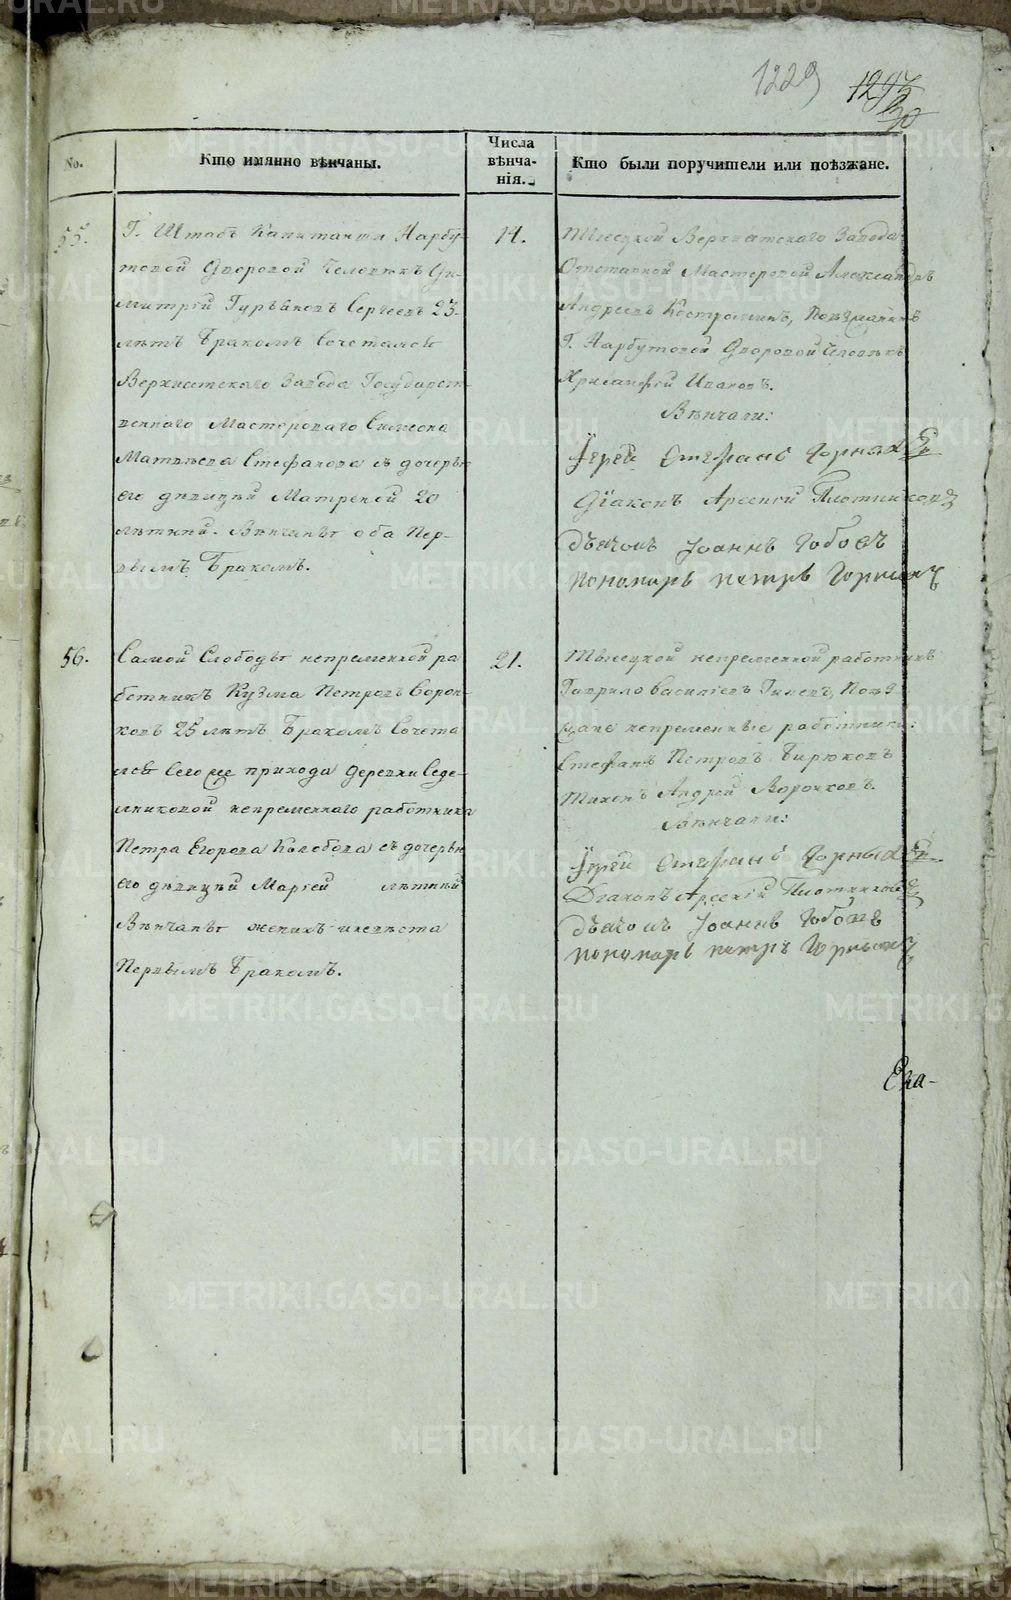 1229 1293
30
No.
Кто имянно вѣнчаны.
Числа
вѣнча-
нія.
Кто были поручители или поѣзжане.
55.
Г. Штабъ Капитанши Нарбу-
товой Дворовой Человѣкъ Ди-
митрій Гурьяновъ Сергеевъ 23-
лѣтъ Бракомъ Сочетался
Верхисетскаго Завода Государст-
веннаго Мастероваго Симеона
Матвѣева Стефанова съ дочерью
его дѣвицей Матреной 20
лѣтней. Вѣнчаны оба Пер-
вымъ Бракомъ.
14.
Верхисетскаго Завода
Отставной Мастеровой Александръ
Андреевъ Костроминъ, Поѣзжанинъ
Г. Нарбутовой Дворовой Человѣкъ
Хрисанфей Ивановъ.
Вѣнчали:
Іерей Стефанъ Горныхъ
Діаконъ Арсеній Плотниковъ
Дьячокъ Іоаннъ
Пономарь Петръ
56.
Самой Слободы непременной ра
ботникъ Кузма Петровъ Ворон-
ковъ 25 лѣтъ Бракомъ Сочета
лся Сегоже прихода деревни Седе-
лниковой непременнаго работника
Петра Егорова Колобова съ дочерью
его дѣвицей Марѳей лѣтней
Вѣнчаны женихъ и невѣста
Первымъ Бракомъ.
21.
непременной работникъ
Гаврило Василіевъ Поѣз
жане непременные работники:
Стефанъ Петровъ Бирюковъ
Андрей Воронковъ.
Вѣнчали:
Іерей Стефанъ Горныхъ
Діаконъ Арсеній Плотниковъ
Дьячокъ Іоаннъ
пономарь петръ
Ека-
METRIKI.GASO-URAL.RU